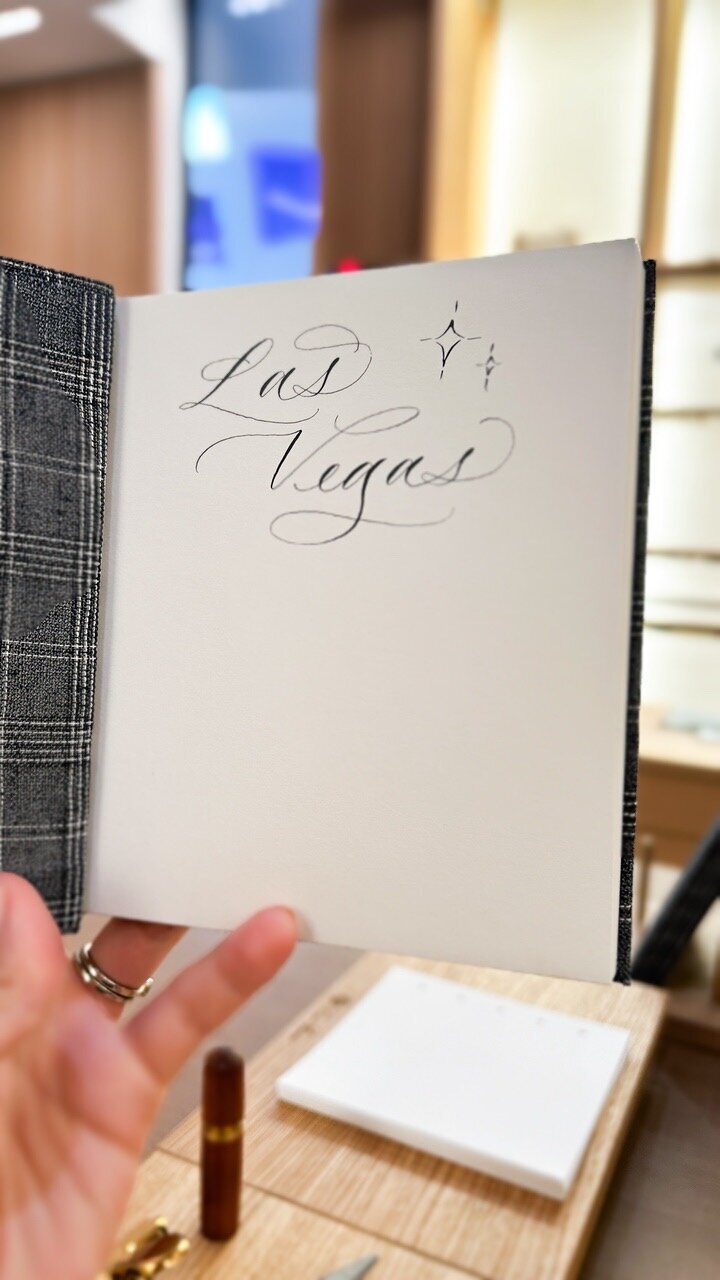 Las
Vegas